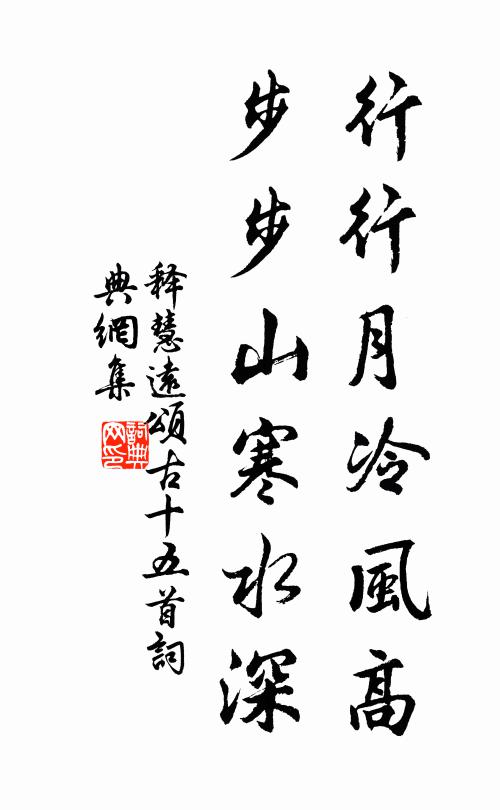 行行月冷風高
步步山寒水深
释慧遠頌古十五首詞
典網集
詞典网印